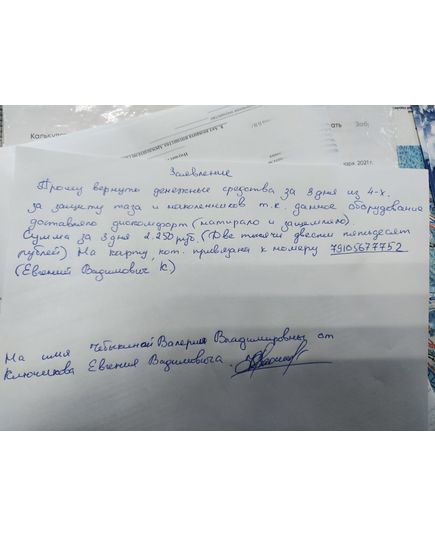 Калькул
ать Забр
варя 2021 г.
Заявление
Прошу вернуть денежные средства за 3 дня из 4-х.
за защиту таза и наколенников т.к. данное оборудование
доставляло дискомфорт (натирало и защемляло)
Сумма за 3 дня 2.250 руб. (Две тысячи двести пятьдесят
рублей) На карту, кот. привязана к номеру 79105677752
(Евгений Вадимович К)
На имя Чебыкиной Валерии Владимировны от
Ключикова Евгения Вадимовича.